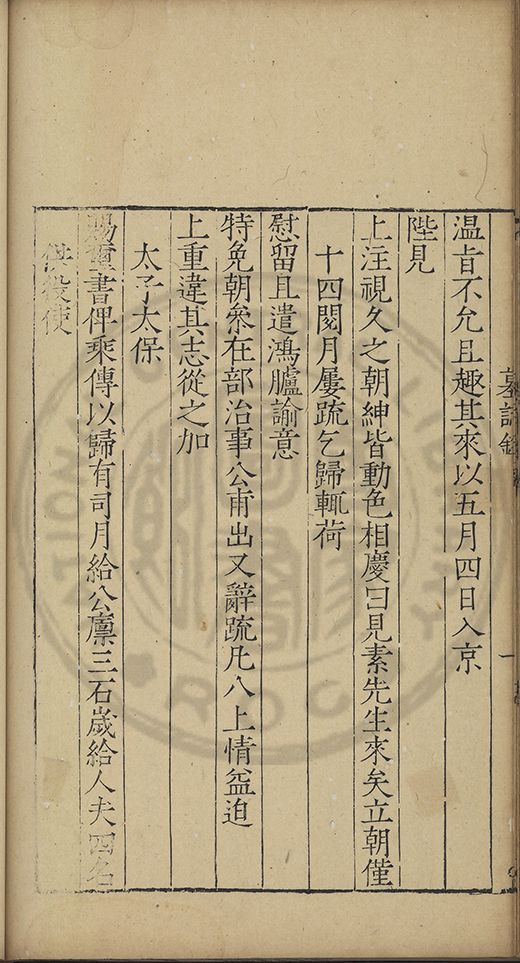 墓誌銘
一
温旨不允且趣其來以五月四日入京
陛見
上注視久之朝紳皆動色相慶曰見素先生來矣立朝僅
十四閱月屢疏乞歸輒荷
慰留且遣鴻臚諭意
特免朝叅在部治事公甫出又辭疏凡八上情益迫
上重違其志從之加
太子太保
賜璽書俾乘傳以歸有司月給公廪三石嵗給人夫四名
供役使